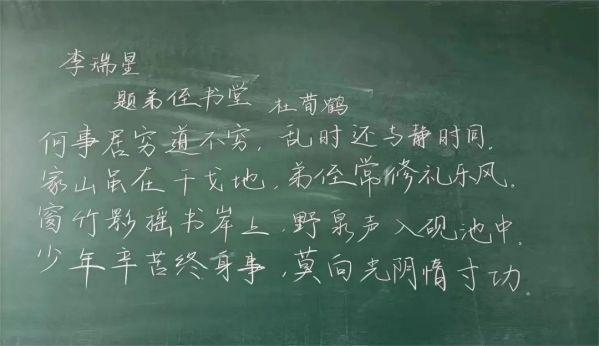 李瑞星
题弟侄书堂 杜荀鹤
何事居穷道不穷，乱时还与静时同。
家山虽在干戈地，弟侄常修礼乐风。
窗竹影摇书岸上，野泉声入砚池中。
少年辛苦终身事，莫向光阴惰寸功。